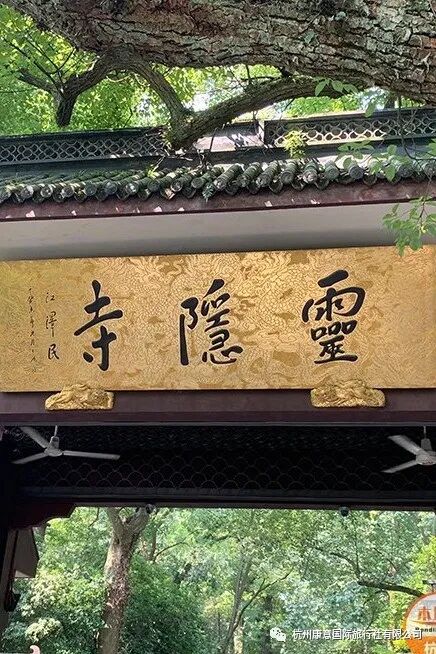 靈隱寺
江澤民
杭州康意国际旅行社有限公司
杭